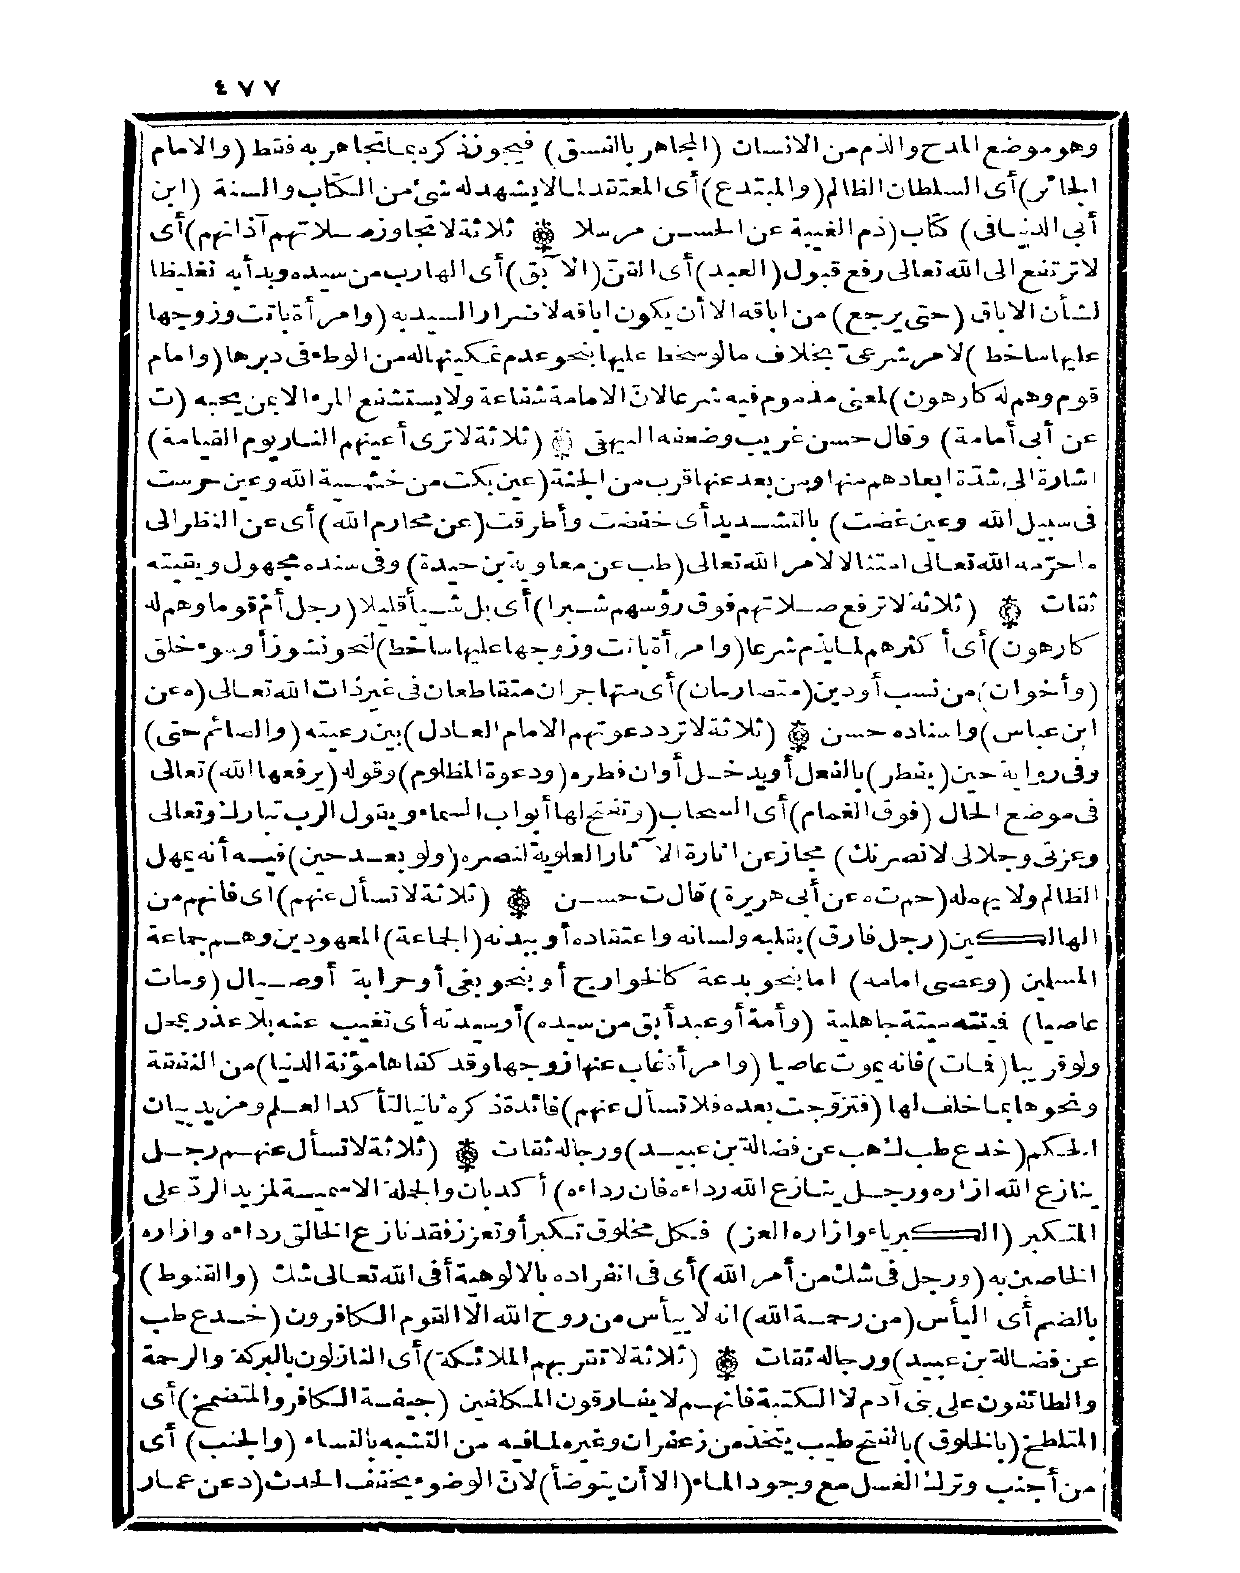 ٤٧٧
وهو موضع المدح والذم من الانسان (المجاهر بالفسق) فيجوز ذكره بما تجاهر به فقط (والامام
الجائر) أى السلطان الظالم (والمبتدع) أى المعتقد لما لا يشهد له شئ من الكتاب والسنة (ابن
أبى الدنيا فى) كتاب (ذم الغيبة عن الحسن مرسلا ثلاثة لا تجاوز صلاتهم آذانهم) أى
لا ترتفع الى الله تعالى رفع قبول (العبد) أى القنّ (الآبق) أى الهارب من سيده وبدأ به تغليظا
لشأن الاباق (حتى يرجع) من اباقه الا أن يكون اباقه لاضرار السيد به (وامرأة باتت وزوجها
عليها ساخط) لامر شرعىّ بخلاف ما لو سخط عليها بنحو عدم تمكينها له من الوطء فى دبرها (وامام
قوم وهم له كارهون) لمعنى مذموم فيه شرعا لانّ الامامة شفاعة ولا يستشفع المرء الا بمن يحبه (ت
عن أبى أمامة) وقال حسن غريب وضعفه البيهقى (ثلاثة لا ترى أعينهم النار يوم القيامة)
اشارة الى شدّة ابعادهم منها ومن بعد عنها قرب من الجنة (عين بكت من خشية الله وعين حرست
فى سبيل الله وعين غضت) بالتشديد أى خفضت وأطرقت (عن محارم الله) أى عن النظر الى
ما حرّمه الله تعالى امتثالا لامر الله تعالى (طب عن معاوية بن حيدة) وفى سنده مجهول وبقيته
ثقات (ثلاثة لا ترفع صلاتهم فوق رؤسهم شبرا) أى بل شيأ قليلا (رجل أمّ قوما وهم له
كارهون) أى أكثرهم لما يذم شرعا (وامرأة باتت وزوجها عليها ساخط) لنحو نشوز أو سوء خلق
(وأخوان) من نسب أو دين (متصارمان) أى متهاجران متقاطعان فى غير ذات الله تعالى (ه عن
ابن عباس) واسناده حسن (ثلاثة لا ترد دعوتهم الامام العادل) بين رعيته (والصائم حتى)
وفى رواية حين (يفطر) بالفعل أو يدخل أوان فطره (ودعوة المظلوم) وقوله (يرفعها الله) تعالى
فى موضع الحال (فوق الغمام) أى السحاب (وتفتح لها أبواب السماء ويقول الرب تبارك وتعالى
وعزتى وجلالى لانصرنك) مجاز عن اثارة الآثار العلوية لنصره (ولو بعد حين) فيه أنه يمهل
الظالم ولا يهمله (حم ت ه عن أبى هريرة) قال ت حسن (ثلاثة لا تسأل عنهم) اى فانهم من
الهالكين (رجل فارق) بقلبه ولسانه واعتقاده أو ببدنه (الجماعة) المعهودين وهم جماعة
المسلمين (وعصى امامه) اما بنحو بدعة كالخوارج أو بنحو بغى أو حرابة أو صيال (ومات
عاصيا) فميتته ميتة جاهلية (وأمة أو عبد أبق من سيده) أو سيدته أى تغيب عنه بلا عذر بمحل
ولو قريبا (فمات) فانه يموت عاصيا (وامرأة غاب عنها زوجها وقد كفاها مؤنة الدنيا) من النفقة
ونحوها بما خلف لها (فتزوّجت بعده فلا تسأل عنهم) فائدة ذكره ثانيا لتأكد العلم ومزيد بيان
الحكم (خد ع طب ك هب عن فضالة بن عبيد) ورجاله ثقات (ثلاثة لا تسأل عنهم رجل
ينازع الله ازاره ورجل ينازع الله رداءه فان رداءه) أكد بان والجملة الاسمية لمزيد الردّ على
المتكبر (الكبرياء وازاره العز) فكل مخلوق تكبر أو تعزز فقد نازع الخالق رداءه وازاره
الخاصين به (ورجل فى شك من أمر الله) أى فى انفراده بالالوهية أفى الله تعالى شك (والقنوط)
بالضم أى اليأس (من رحمة الله) انه لا ييأس من روح الله الا القوم الكافرون (خد ع طب
عن فضالة بن عبيد) ورجاله ثقات (ثلاثة لا تقربهم الملائكة) أى النازلون بالبركة والرحمة
والطائفون على بنى آدم لا الكتبة فانهم لا يفارقون المكلفين (جيفة الكافر والمتضمخ) أى
المتلطخ (بالخلوق) بالفتح طيب يتخذ من زعفران وغيره لما فيه من التشبه بالنساء (والجنب) أى
من أجنب وترك الغسل مع وجود الماء (الا أن يتوضأ) لانّ الوضوء يخفف الحدث (د عن عمار